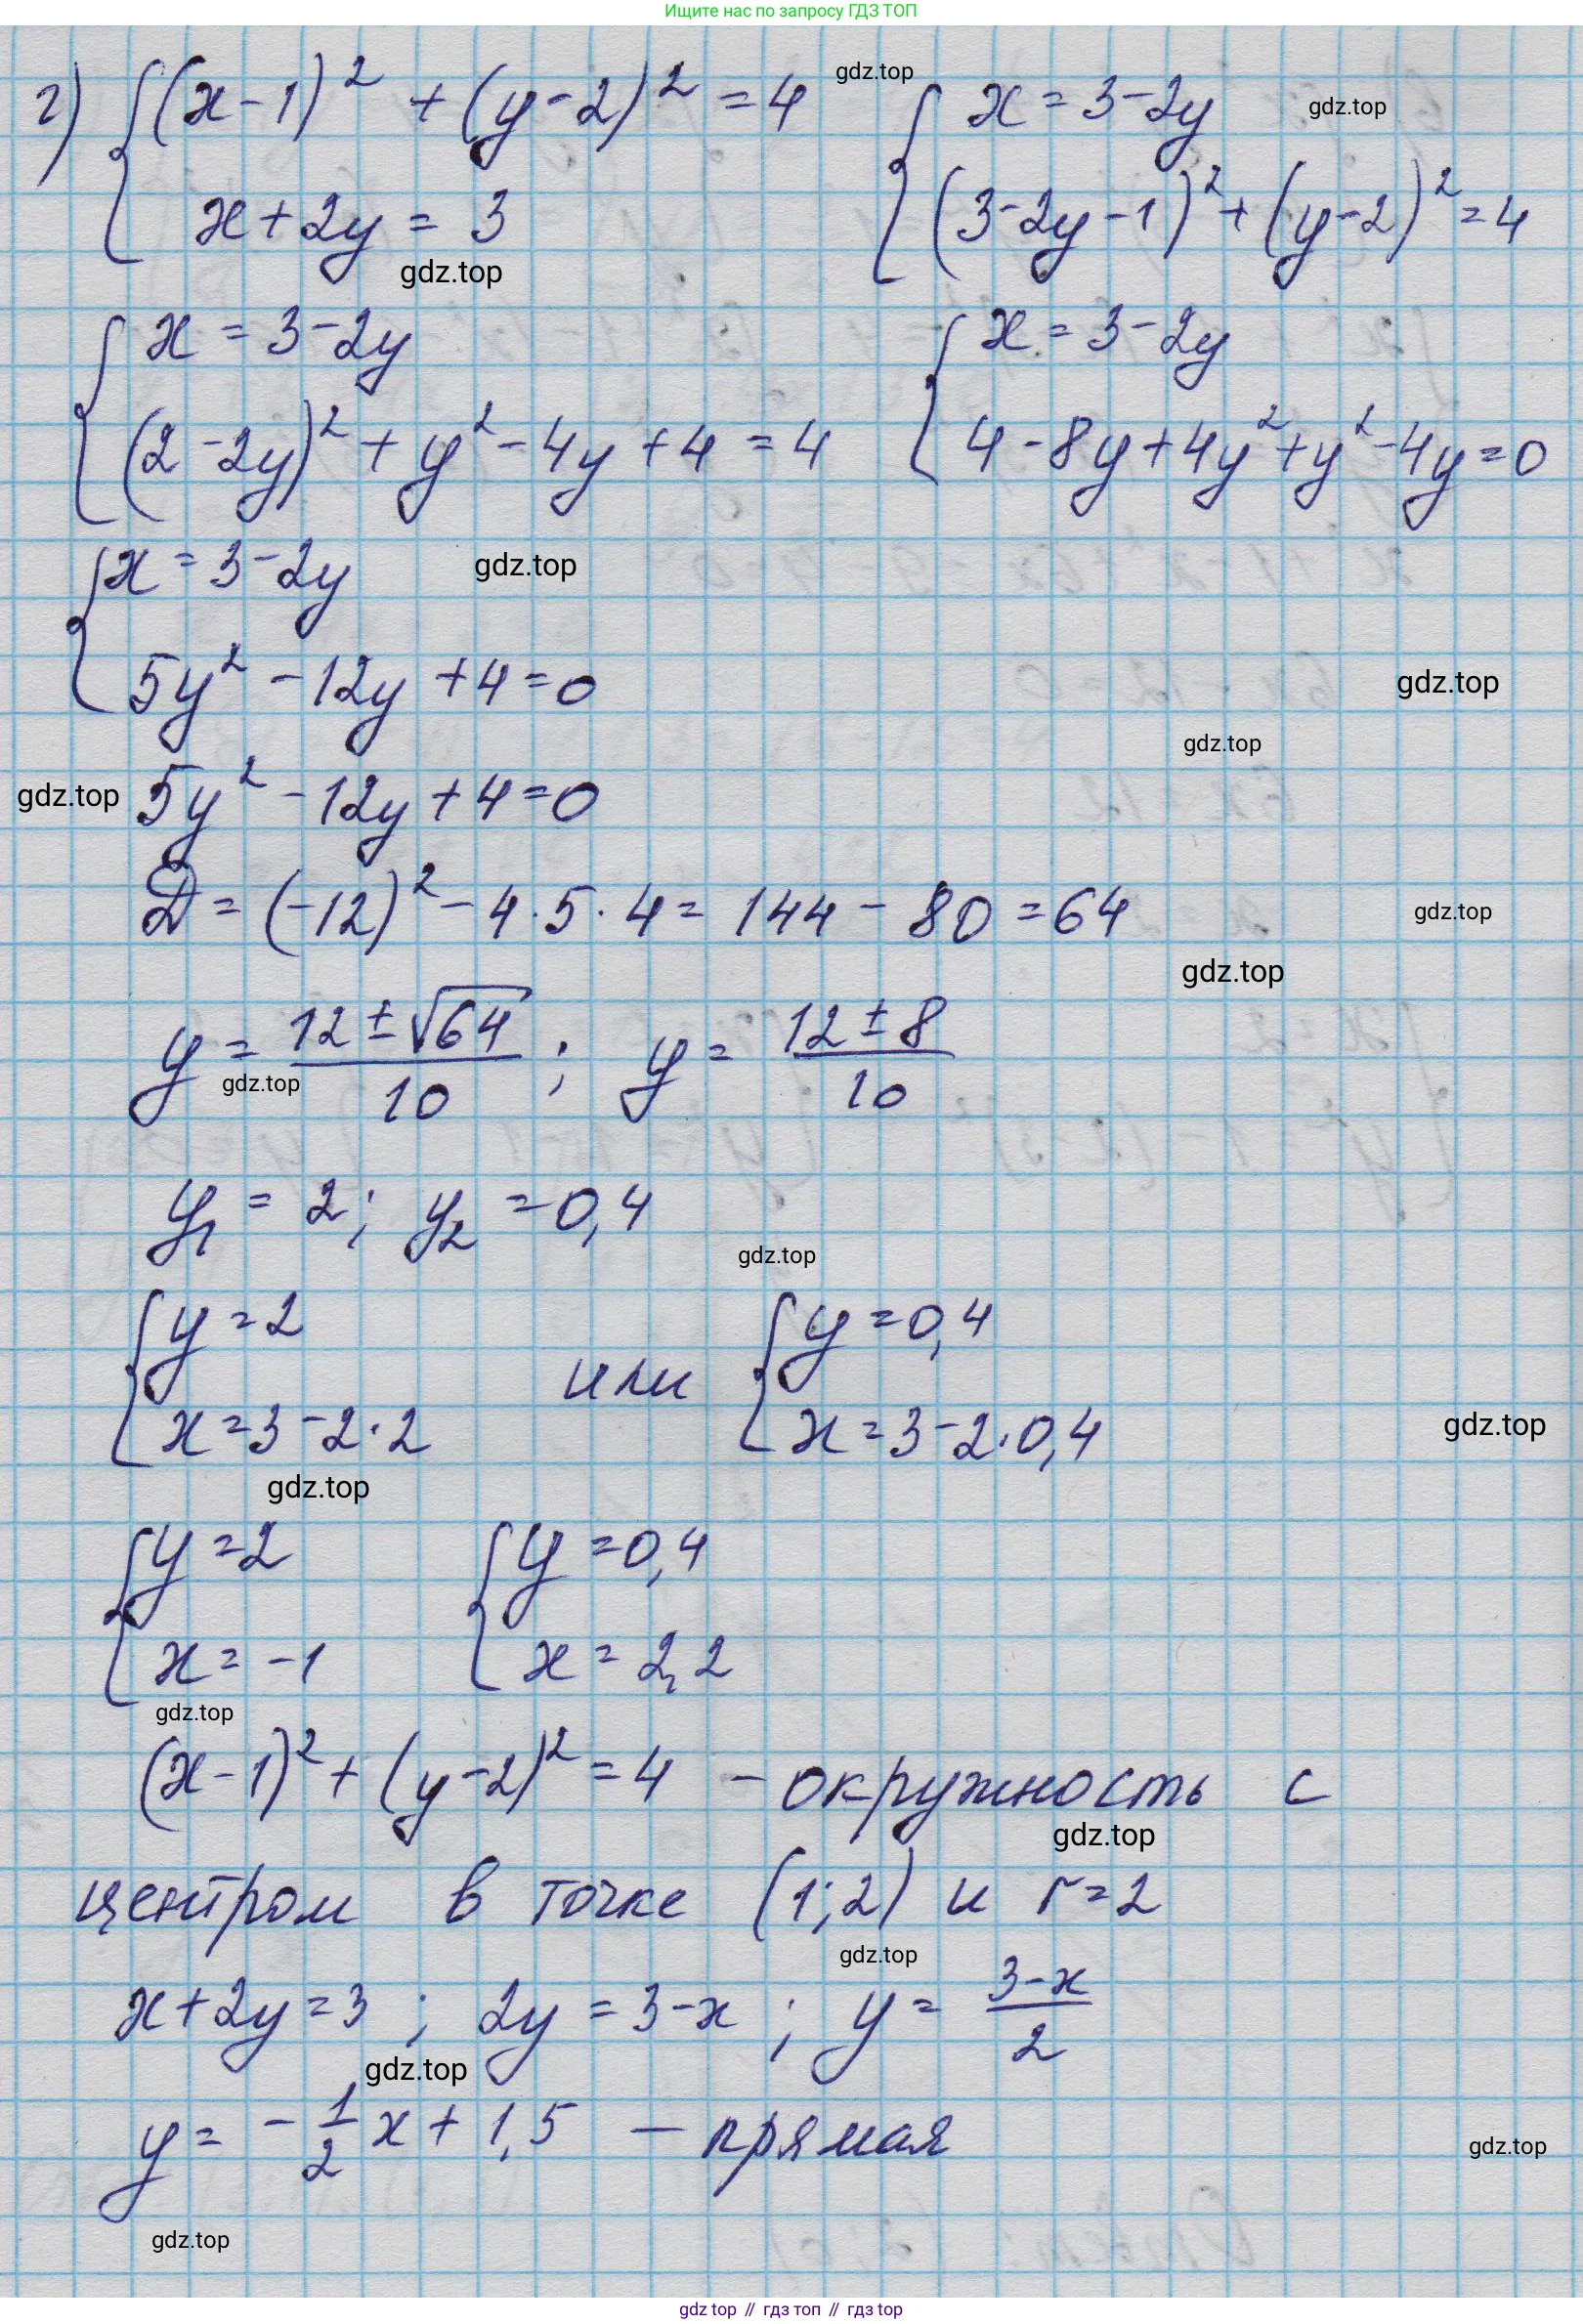 Ищите нас по запросу ГДЗ ТОП
г) { (x-1)² + (y-2)² = 4 gdz.top { x = 3-2y gdz.top
x+2y = 3 (3-2y-1)² + (y-2)² = 4
gdz.top
{ x = 3-2y { x = 3-2y
(2-2y)² + y² - 4y + 4 = 4 4-8y+4y²+y²-4y=0
{ x = 3-2y gdz.top
5y² - 12y + 4 = 0 gdz.top
gdz.top
gdz.top 5y² - 12y + 4 = 0
D = (-12)² - 4·5·4 = 144 - 80 = 64 gdz.top
gdz.top
y = (12 ± √64)/10 ; y = (12 ± 8)/10
gdz.top
y₁ = 2; y₂ = 0,4
gdz.top
{ y = 2 или { y = 0,4
x = 3-2·2 x = 3-2·0,4 gdz.top
gdz.top
{ y = 2 { y = 0,4
x = -1 x = 2,2
gdz.top
(x-1)² + (y-2)² = 4 - окружность с
gdz.top
центром в точке (1;2) и r=2
gdz.top
x+2y=3 ; 2y = 3-x ; y = (3-x)/2
gdz.top
y = -1/2 x + 1,5 - прямая gdz.top
gdz.top
gdz top // гдз топ // гдз top